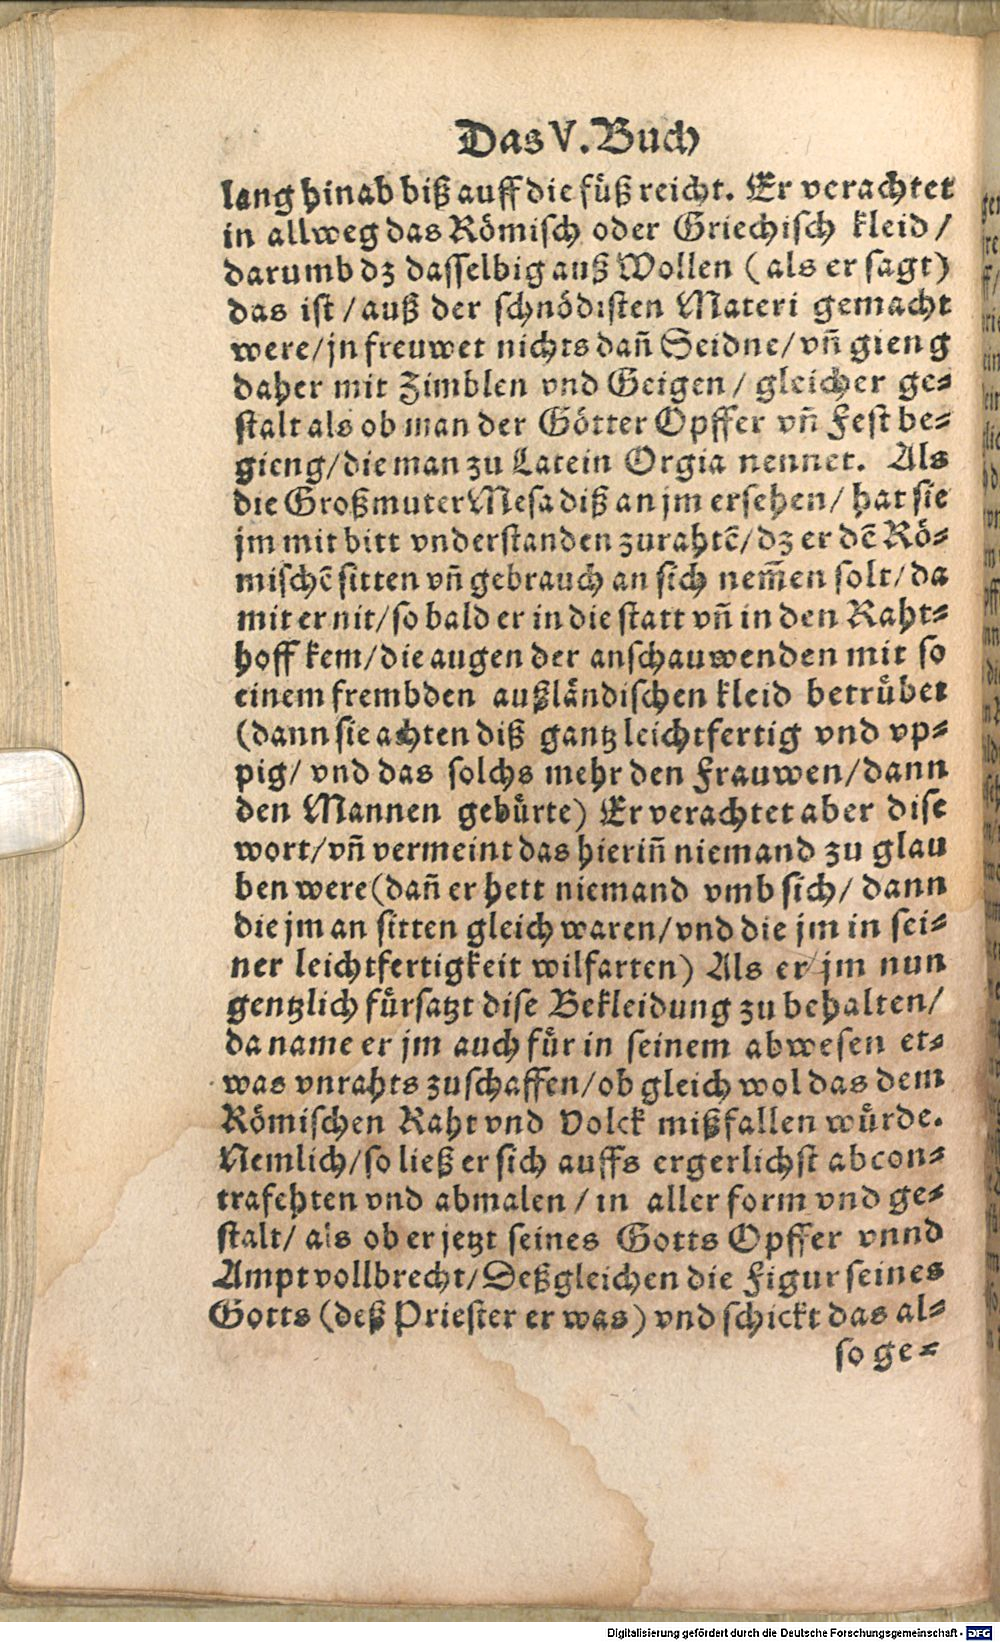 Das V. Buch
lang hinab biß auff die füß reicht. Er verachtet
in allweg das Römisch oder Griechisch kleid /
darumb dz dasselbig auß Wollen ( als er sagt)
das ist / auß der schnödisten Materi gemacht
were/jn freuwet nichts dañ Seidne/vñ gieng
daher mit Zimblen vnd Geigen / gleicher ge⸗
stalt als ob man der Götter Opffer vñ Fest be⸗
gieng/die man zu Latein Orgia nennet. Als
die Großmuter Mesa diß an jm ersehen/ hat sie
jm mit bitt vnderstanden zurahtẽ/dz er dẽ Rö⸗
mischẽ sitten vñ gebrauch an sich nem̃en solt/da
mit er nit/so bald er in die statt vñ in den Raht⸗
hoff kem/die augen der anschauwenden mit so
einem frembden außländischen kleid betrübet
(dann sie achten diß gantz leichtfertig vnd vp⸗
pig/ vnd das solchs mehr den Frauwen/dann
den Mannen gebürte) Er verachtet aber dise
wort/vñ vermeint das hieriñ niemand zu glau
ben were(dañ er hett niemand vmb sich/ dann
die jm an sitten gleich waren/vnd die jm in sei⸗
ner leichtfertigkeit wilfarten) Als er jm nun
gentzlich fürsatzt dise Bekleidung zu behalten/
da name er jm auch für in seinem abwesen et⸗
was vnrahts zuschaffen/ob gleich wol das dem
Römischen Raht vnd Volck mißfallen würde.
Nemlich/so ließ er sich auffs ergerlichst abcon⸗
trafehten vnd abmalen / in aller form vnd ge⸗
stalt/ als ob er jetzt seines Gotts Opffer vnnd
Ampt vollbrecht/Deßgleichen die Figur seines
Gotts (deß Priester er was) vnd schickt das al⸗
so ge⸗
Digitalisierung gefördert durch die Deutsche Forschungsgemeinschaft - DFG